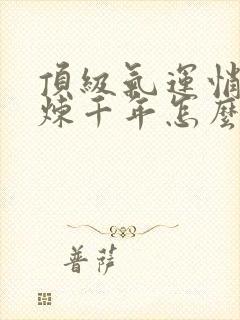 頂級氣運悄
煉千年怎麼
菩薩